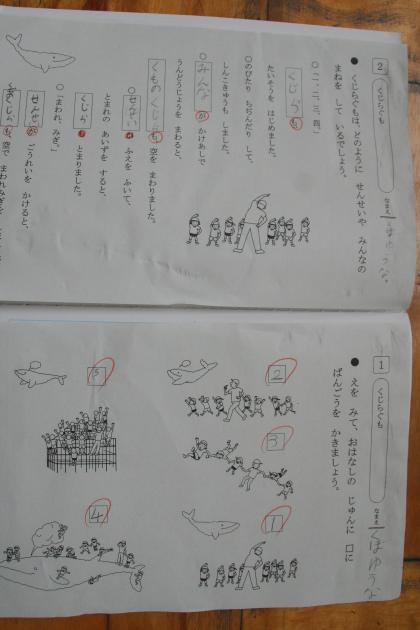 2
くじらぐも
なまえ くぼゆうな
●くじらぐもは、どのように せんせいや みんなの
まねを して いるでしょう。
○「一、二、三、四。」
くじらも
たいそうを はじめました。
○のびたり ちぢんだり して、
しんこきゅうも しました。
○みんなが かけあしで
うんどうじょうを まわると、
くものくじらも 空を まわりました。
○せんせいが ふえを ふいて、
とまれの あいずを すると、
くじらも とまりました。
○「まわれ、みぎ。」
せんせいが ごうれいを かけると、
くじらも 空で まわれみぎを
1
くじらぐも
なまえ くぼゆうな
●えを みて、おはなしの じゅんに 口に
ばんごうを かきましょう。
2
3
1
5
4